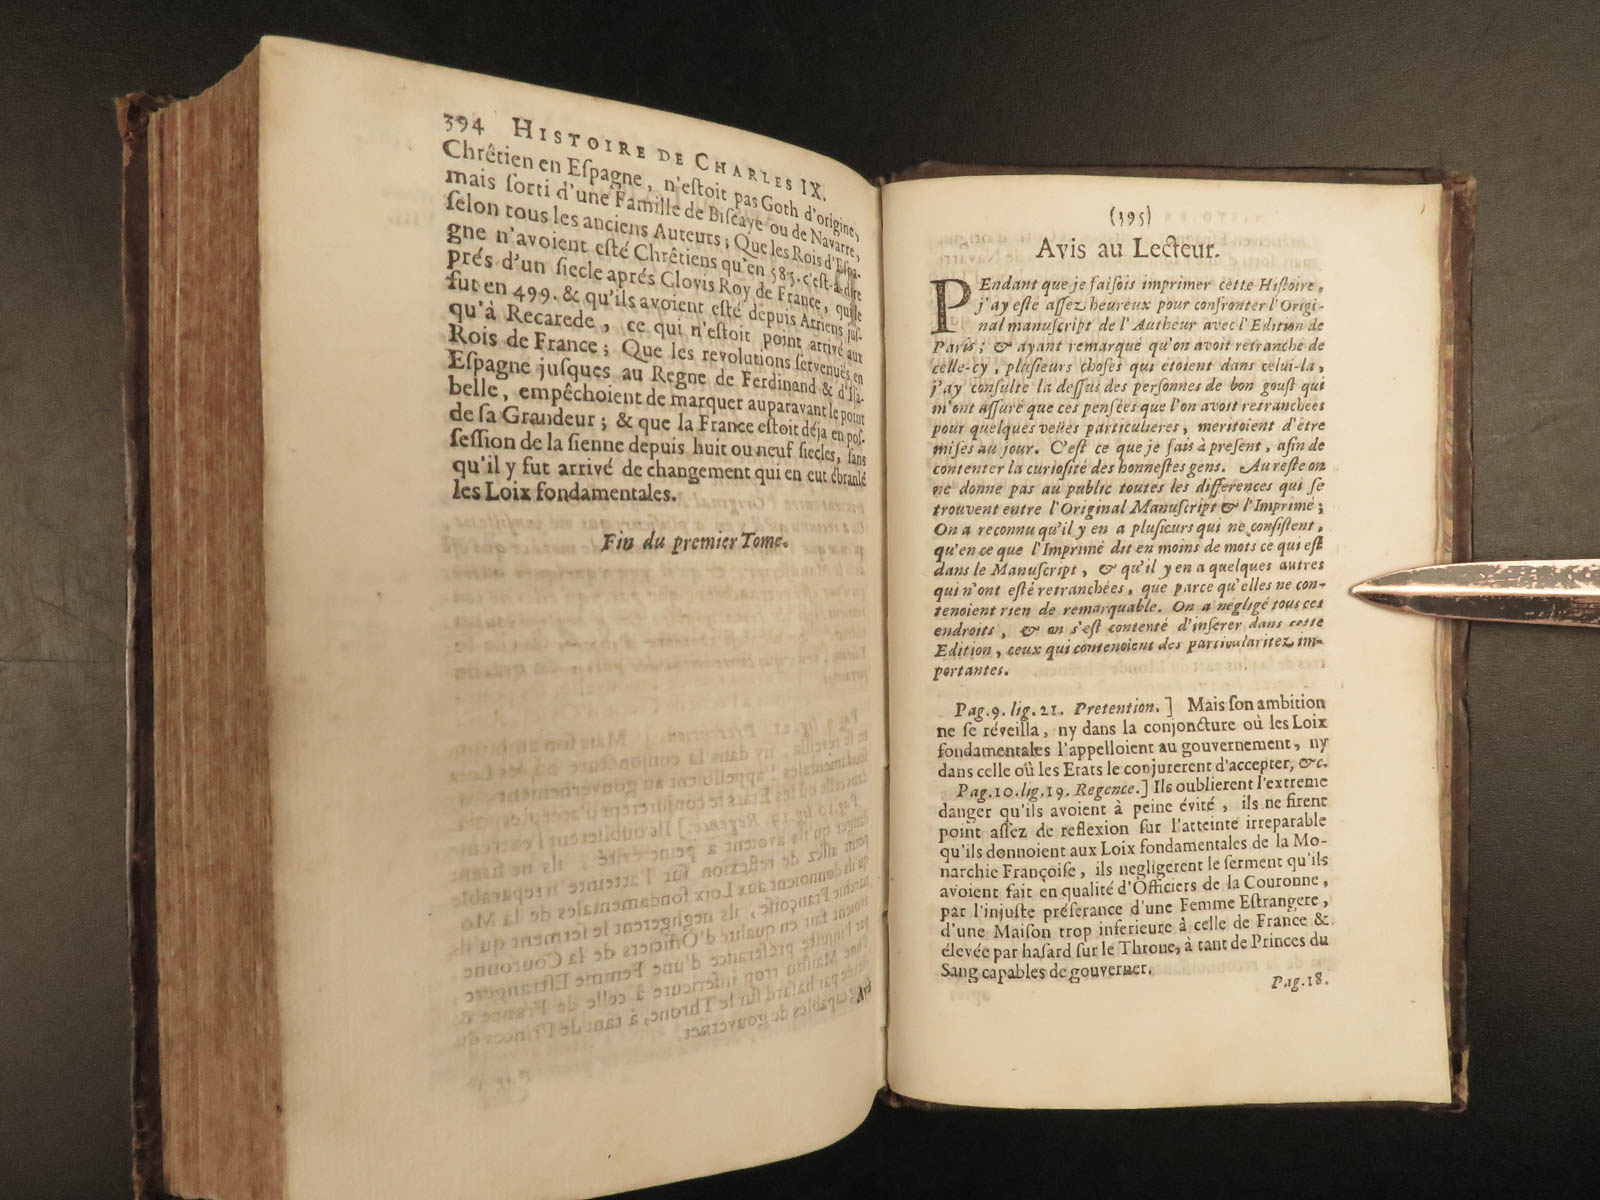 394 HISTOIRE DE CHARLES IX.
Chrêtien en Eſpagne, n'eſtoit pas Goth d'origine,
mais ſorti d'une Famille de Biſcaye ou de Navarre,
ſelon tous les anciens Auteurs; Que les Rois d'Eſpa-
gne n'avoient eſté Chrêtiens qu'en 585. c'eſt-à-dire
prés d'un ſiecle aprés Clovis Roy de France, qui le
fut en 499. & qu'ils avoient eſté depuis Arriens juſ-
qu'à Recarede, ce qui n'eſtoit point arrivé aux
Rois de France; Que les revolutions ſervenuës en
Eſpagne juſques au Regne de Ferdinand & d'Iſa-
belle, empêchoient de marquer auparavant le point
de ſa Grandeur; & que la France eſtoit déja en poſ-
ſeſſion de la ſienne depuis huit ou neuf ſiecles, ſans
qu'il y fut arrivé de changement qui en eut ébranlé
les Loix fondamentales.
Fin du premier Tome.
(395)
Avis au Lecteur.
PEndant que je faiſois imprimer cette Hiſtoire,
j'ay eſté aſſez heureux pour confronter l'Origi-
nal manuſcript de l'Autheur avec l'Edition de
Paris; & ayant remarqué qu'on avoit retranché de
celle-cy, pluſieurs choſes qui étoient dans celui-la,
j'ay conſulté la deſſus des perſonnes de bon gouſt qui
m'ont aſſuré que ces penſées que l'on avoit retranchées
pour quelques veües particulieres, meritoient d'être
miſes au jour. C'eſt ce que je fais à preſent, afin de
contenter la curioſité des honneſtes gens. Au reſte on
ne donne pas au public toutes les differences qui ſe
trouvent entre l'Original Manuſcript & l'Imprimé;
On a reconnu qu'il y en a pluſieurs qui ne conſiſtent,
qu'en ce que l'Imprimé dit en moins de mots ce qui eſt
dans le Manuſcript, & qu'il y en a quelques autres
qui n'ont eſté retranchées, que parce qu'elles ne con-
tenoient rien de remarquable. On a négligé tous ces
endroits, & on s'eſt contenté d'inſerer dans cette
Edition, ceux qui contenoient des particularitez im-
portantes.
Pag. 9. lig. 21. Pretention.] Mais ſon ambition
ne ſe réveilla, ny dans la conjoncture où les Loix
fondamentales l'appelloient au gouvernement, ny
dans celle où les Etats le conjurerent d'accepter, &c.
Pag. 10. lig. 19. Regence.] Ils oublierent l'extreme
danger qu'ils avoient à peine évité, ils ne firent
point aſſez de reflexion ſur l'atteinte irreparable
qu'ils donnoient aux Loix fondamentales de la Mo-
narchie Françoiſe, ils negligerent le ſerment qu'ils
avoient fait en qualité d'Officiers de la Couronne,
par l'injuſte préferance d'une Femme Eſtrangere,
d'une Maiſon trop inferieure à celle de France &
élevée par haſard ſur le Throne, à tant de Princes du
Sang capables de gouverner.
Pag. 18.